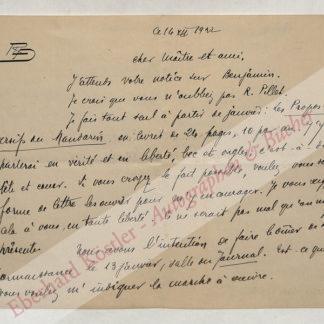 ce 16 XII 1922
cher Maître et ami,
J'attends votre notice sur Benjamin.
Je crois que vous n'oubliez pas R. Pillet.
Je fais tout seul à partir de janvier: les Propos
du Mandarin, en livret de 24 pages, 10 par an. J'y
parlerai en vérité et en liberté, bec et ongles, c'est à
tête et cœur. Et vous croyez le fait possible, voulez-vous
forme de lettre ouverte pour m'encourager. Je vous
cela à vous, en toute liberté
présente. Nous avons l'intention de faire
connaissance le 13 janvier, salle du Journal. Est-ce que
vous voulez m'indiquer la marche à suivre.
Eberhard Köstler - Autographen & Bücher